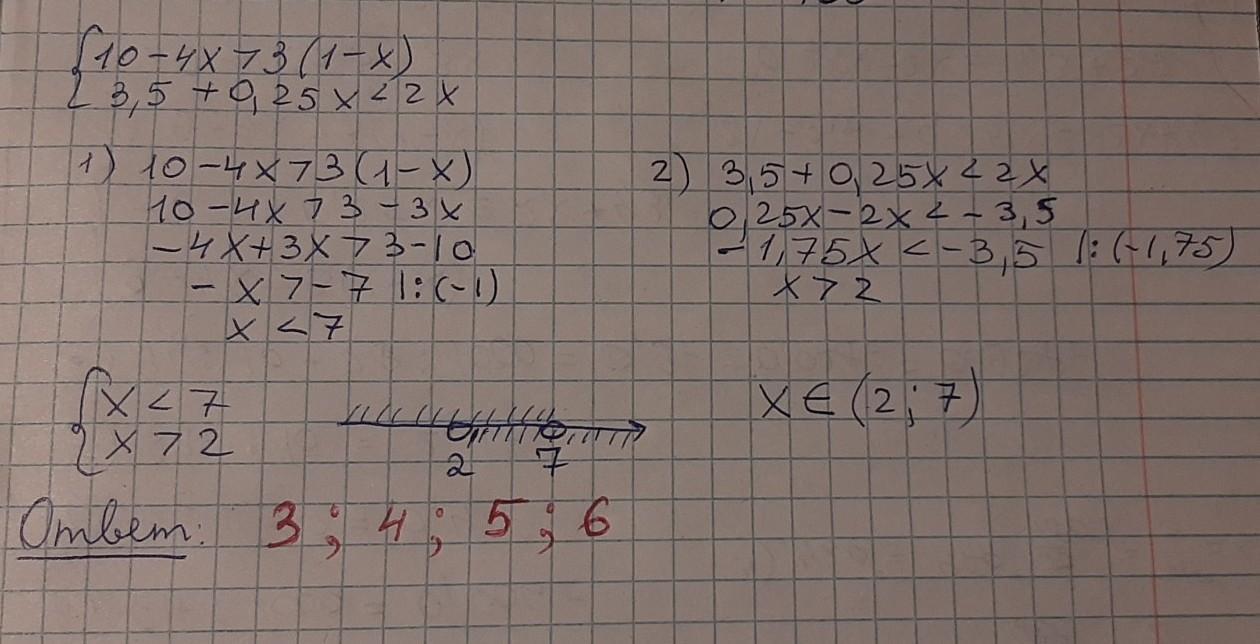 {10-4x>3(1-x)
3,5+0,25x<2x
1) 10-4x>3(1-x)
10-4x>3-3x
-4x+3x>3-10
-x>-7 |:(-1)
x<7
2) 3,5+0,25x<2x
0,25x-2x<-3,5
-1,75x<-3,5 |:(-1,75)
x>2
{x<7
x>2
2 7
x∈(2;7)
Ответ: 3; 4; 5; 6